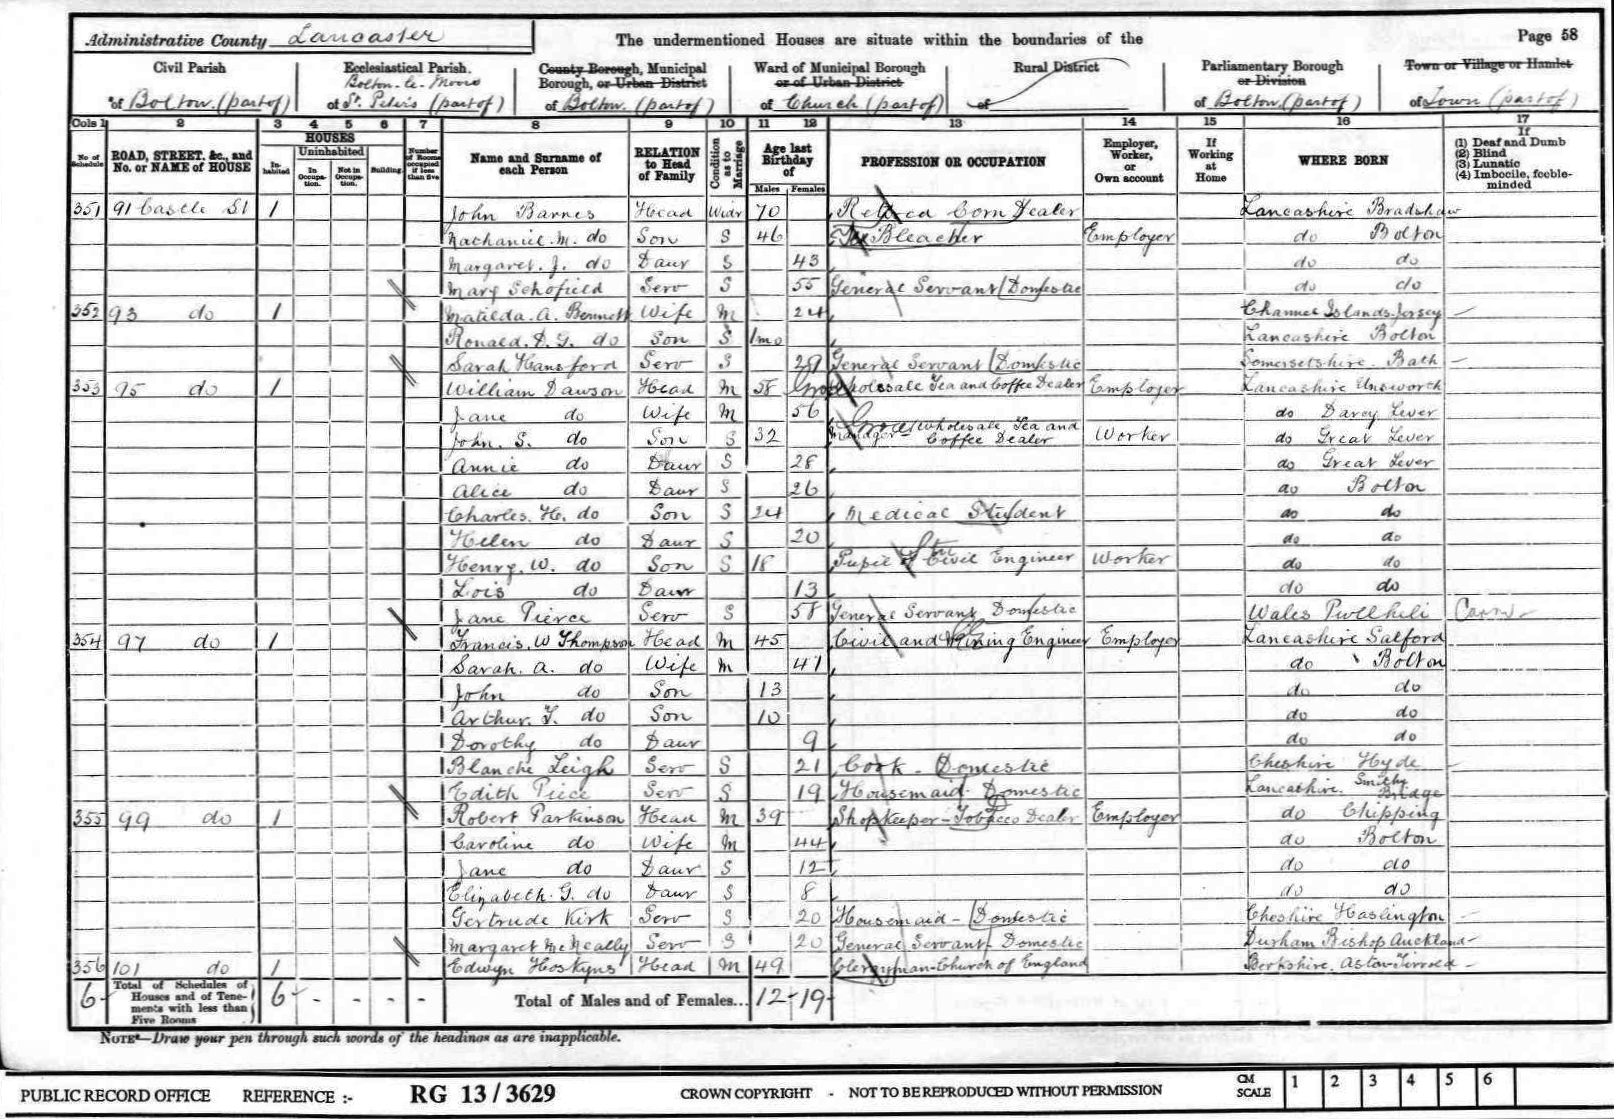 Administrative County Lancaster
The undermentioned Houses are situate within the boundaries of the
Page 58
Civil Parish
of Bolton (part of)
Ecclesiastical Parish.
Bolton-le-Moors
of St. Peters (part of)
County Borough, Municipal
Borough, or Urban District
of Bolton (part of)
Ward of Municipal Borough
or of Urban District
of Church (part of)
Rural District
of
Parliamentary Borough
or Division
of Bolton (part of)
Town or Village or Hamlet
of Town (part of)
Cols 1 2 3 4 5 6 7 8 9 10 11 12 13 14 15 16 17
No of Schedule
ROAD, STREET, &c., and No. or NAME of HOUSE
HOUSES
Inhabited
Uninhabited
In Occupation.
Not in Occupation.
Building.
Number of Rooms occupied if less than five
Name and Surname of each Person
RELATION to Head of Family
Condition as to Marriage
Age last Birthday of
Males Females
PROFESSION OR OCCUPATION
Employer, Worker, or Own account
If Working at Home
WHERE BORN
If
(1) Deaf and Dumb
(2) Blind
(3) Lunatic
(4) Imbecile, feeble-minded
351 91 Castle St 1 John Barnes Head Widr 70 Retired Corn Dealer Lancashire Bradshaw
Nathaniel. M. do Son S 46 Bleacher Employer do Bolton
Margaret. J. do Daur S 43 do do
Mary Schofield Serv S 55 General Servant Domestic do do
352 93 do 1 Matilda. A. Bennett Wife M 24 Channel Islands Jersey
Ronald. D. G. do Son S 1mo Lancashire Bolton
Sarah Hansford Serv S 29 General Servant Domestic Somersetshire. Bath
353 95 do 1 William Dawson Head M 58 Wholesale Tea and Coffee Dealer Employer Lancashire Unsworth
Jane do Wife M 56 do Darcy Lever
John. S. do Son S 32 Manager Wholesale Tea and Coffee Dealer Worker do Great Lever
Annie do Daur S 28 do Great Lever
Alice do Daur S 26 do Bolton
Charles. H. do Son S 24 Medical Student do do
Helen do Daur S 20 do do
Henry. W. do Son S 18 Pupil Civil Engineer Worker do do
Lois do Daur 13 do do
Jane Pierce Serv S 58 General Servant Domestic Wales Pwllheli
354 97 do 1 Francis. W Thompson Head M 45 Civil and Mining Engineer Employer Lancashire Salford
Sarah. A. do Wife M 41 do Bolton
John do Son 13 do do
Arthur. T. do Son 10 do do
Dorothy do Daur 9 do do
Blanche Leigh Serv S 21 Cook - Domestic Cheshire Hyde
Edith Piece Serv S 19 Housemaid Domestic Lancashire. Smithy Bridge
355 99 do 1 Robert Parkinson Head M 39 Shopkeeper - Tobacco Dealer Employer do Chipping
Caroline do Wife M 44 do Bolton
Jane do Daur S 12 do do
Elizabeth. G. do Daur S 8 do do
Gertrude Kirk Serv S 20 Housemaid - Domestic Cheshire Haslington
Margaret McNeally Serv S 20 General Servant Domestic Durham Bishop Auckland
356 101 do 1 Edwyn Hoskyns Head M 49 Clergyman - Church of England Berkshire. Aston Tirrold
6 Total of Schedules of Houses and of Tenements with less than Five Rooms 6 - - - - Total of Males and of Females... 12 19
NOTE—Draw your pen through such words of the headings as are inapplicable.
PUBLIC RECORD OFFICE REFERENCE :- RG 13 / 3629 CROWN COPYRIGHT - NOT TO BE REPRODUCED WITHOUT PERMISSION CM SCALE 1 2 3 4 5 6